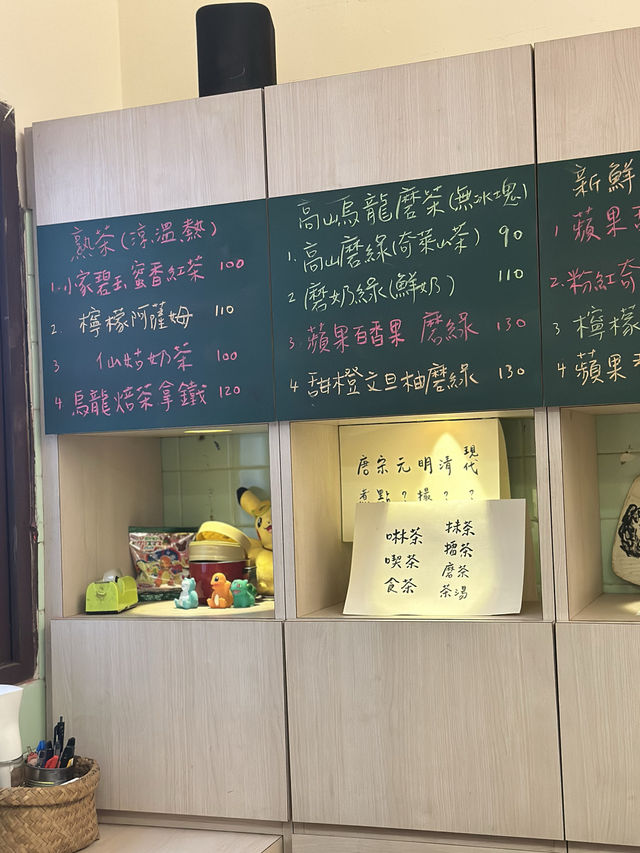 熟茶(涼、溫、熱)
1. 小家碧玉 蜜香紅茶 100
2. 檸檬阿薩姆 110
3 仙姑奶茶 100
4 烏龍焙茶拿鐵 120
高山烏龍磨茶(無冰塊)
1. 高山磨綠(奇萊山茶) 90
2 磨奶綠(鮮奶) 110
3. 蘋果百香果 磨綠 130
4 甜橙文旦柚磨綠 130
新鮮
1 蘋果
2. 粉紅奇
3 檸檬
4 蘋果
唐宋元明清 現代
煮點?撮??
啉茶
喫茶
食茶
抹茶
擂茶
磨茶
茶湯